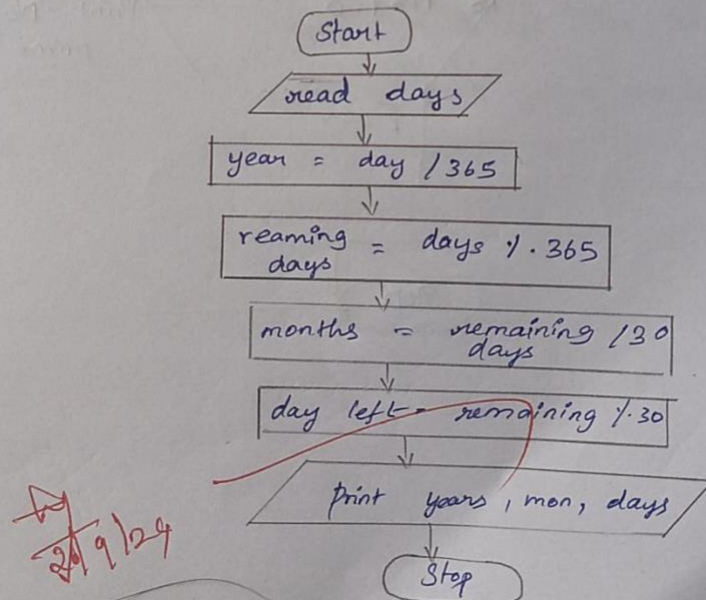 Start
read days
year = day / 365
reaming days = days % 365
months = remaining days / 30
day left = remaining % 30
Print years, mon, days
Stop
9/24